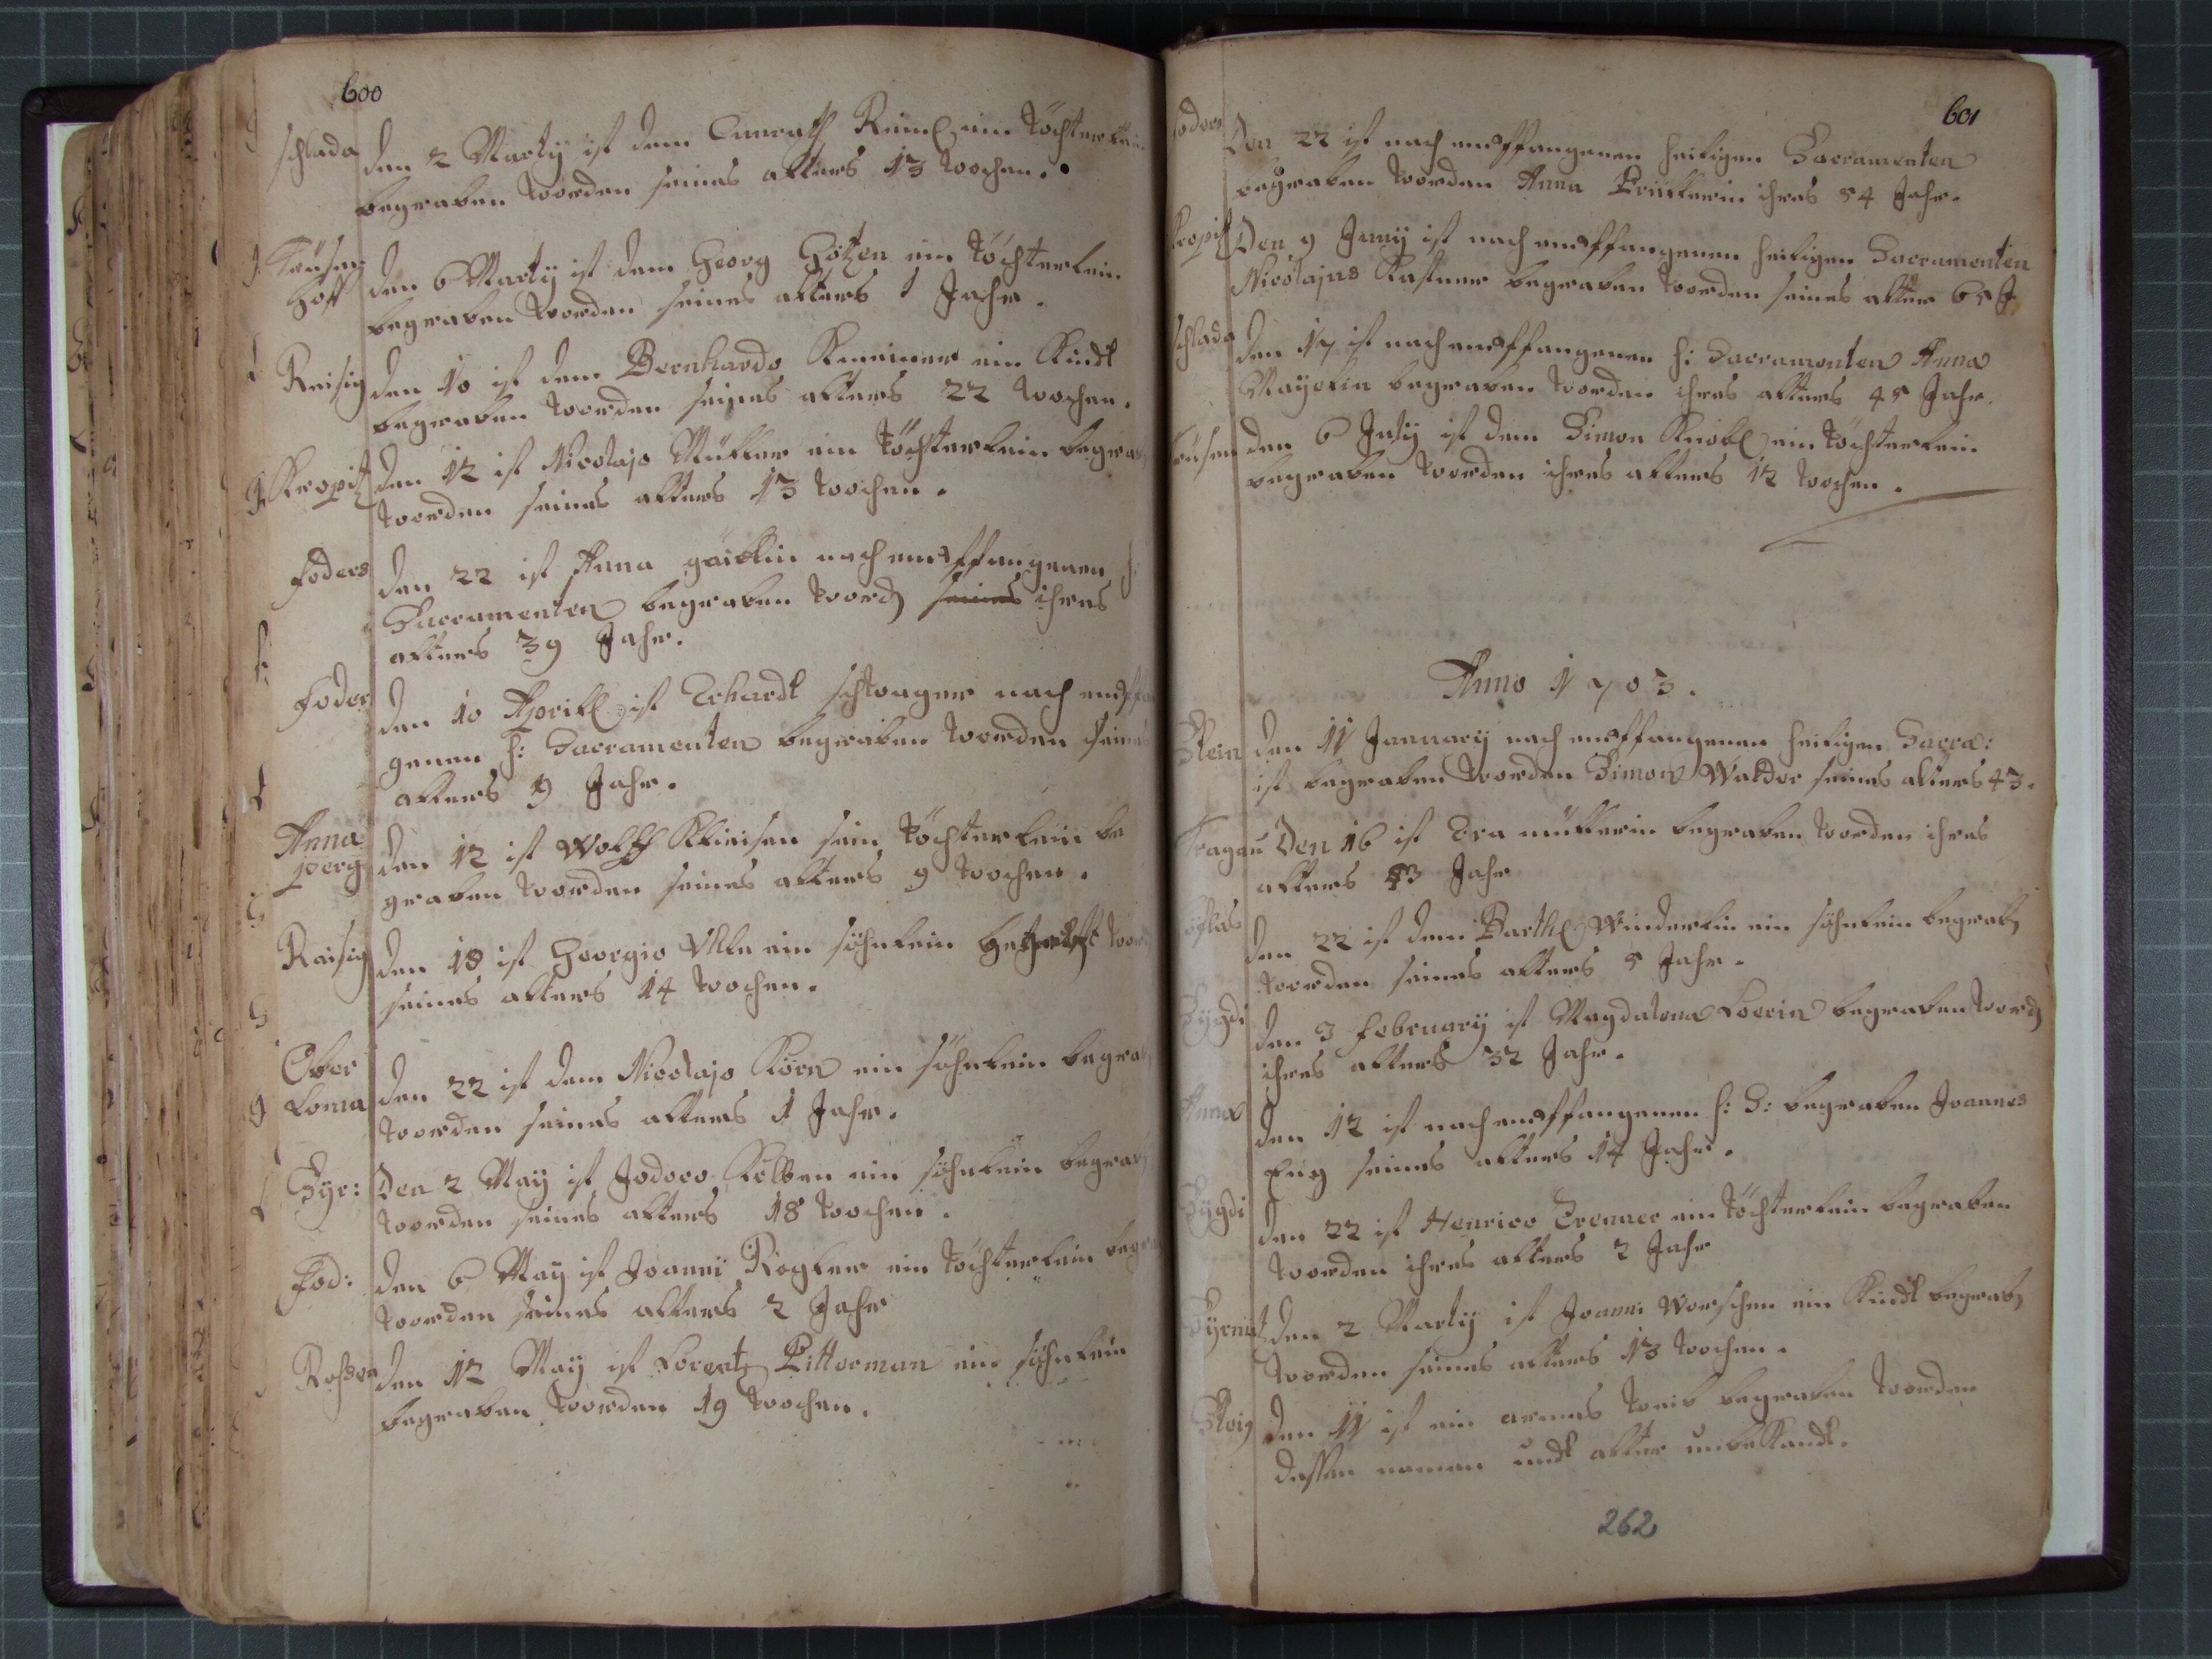 600
schlada den 2 Marty ist dem Cunrath Rimel ein töchterlein
begraben worden seines alters 13 wochen.
den 6 Marty ist dem Georg Götzen ein töchterlein
hoff begraben worden seines alters 1 Jahr.
Reisig den 10 ist dem Bernhardo ein Kindt
begraben worden seines alters 22 wochen.
Kropitz den 12 ist Nicolajo Müller ein töchterlein begrab
worden seines alters 13 wochen.
foders den 22 ist Anna nach empffangenen h:
Sacramenten begraben word seines ihres
alters 39 Jahr.
foder den 10 Aprill ist Erhardt schwager nach empffan
genen h: Sacramenten begraben worden seines
alters 9 Jahr.
Anna
perg den 12 ist Wolff sein töchterlein be
graben worden seines alters 9 wochen.
Raisig den 18 ist Georgio Ulln ein söhnlein word
seines alters 14 wochen.
Ober
Loma den 22 ist dem Nicolajo Korn ein söhnlein begrab
worden seines alters 1 Jahr.
Den 2 May ist Jodoco Kolben ein söhnlein begrab
worden seines alters 18 wochen.
fod: den 6 May ist Joanni Rogler ein töchterlein begra
worden seines alters 2 Jahr
Rossen den 12 May ist Lorentz Pitterman ein söhnlein
begraben worden 19 wochen.
601
foders Den 22 ist nach empffangenen heiligen Sacramenten
begraben worden Anna ihres 54 Jahr.
Kropitz Den 9 Juny ist nach empffangenen heiligen Sacramenten
Nicolajus Kastner begraben worden seines alter 65 J
schlada den 17 ist nach empffangenen h: Sacramenten Anna
Mayerin begraben worden ihres alters 45 Jahr.
den 6 July ist dem Simon Knobl ein töchterlein
begraben worden ihres alters 12 wochen.
Anno 1703.
Stein den 11 January nach empffangenen heiligen Sacra:
ist begraben worden Simon Walder seines alters 43.
Tragaü Den 16 ist Eva müllerin begraben worden ihres
alters 43 Jahr
höflas den 22 ist dem Barthl Winderlin ein söhnlein begrab
worden seines alters 5 Jahr.
den 3 february ist Magdalena begraben word
ihres alters 32 Jahr.
Anna den 12 ist nach empffangenen h: S: begraben Joannes
seines alters 14 Jahr.
den 22 ist Henrico ein töchterlein begraben
worden ihres alters 2 Jahr
den 2 Marty ist Joanni Worschen ein Kindt begrab
worden seines alters 13 wochen.
den 11 ist ein armes weib begraben worden
dessen namen undt alter unbekandt.
262